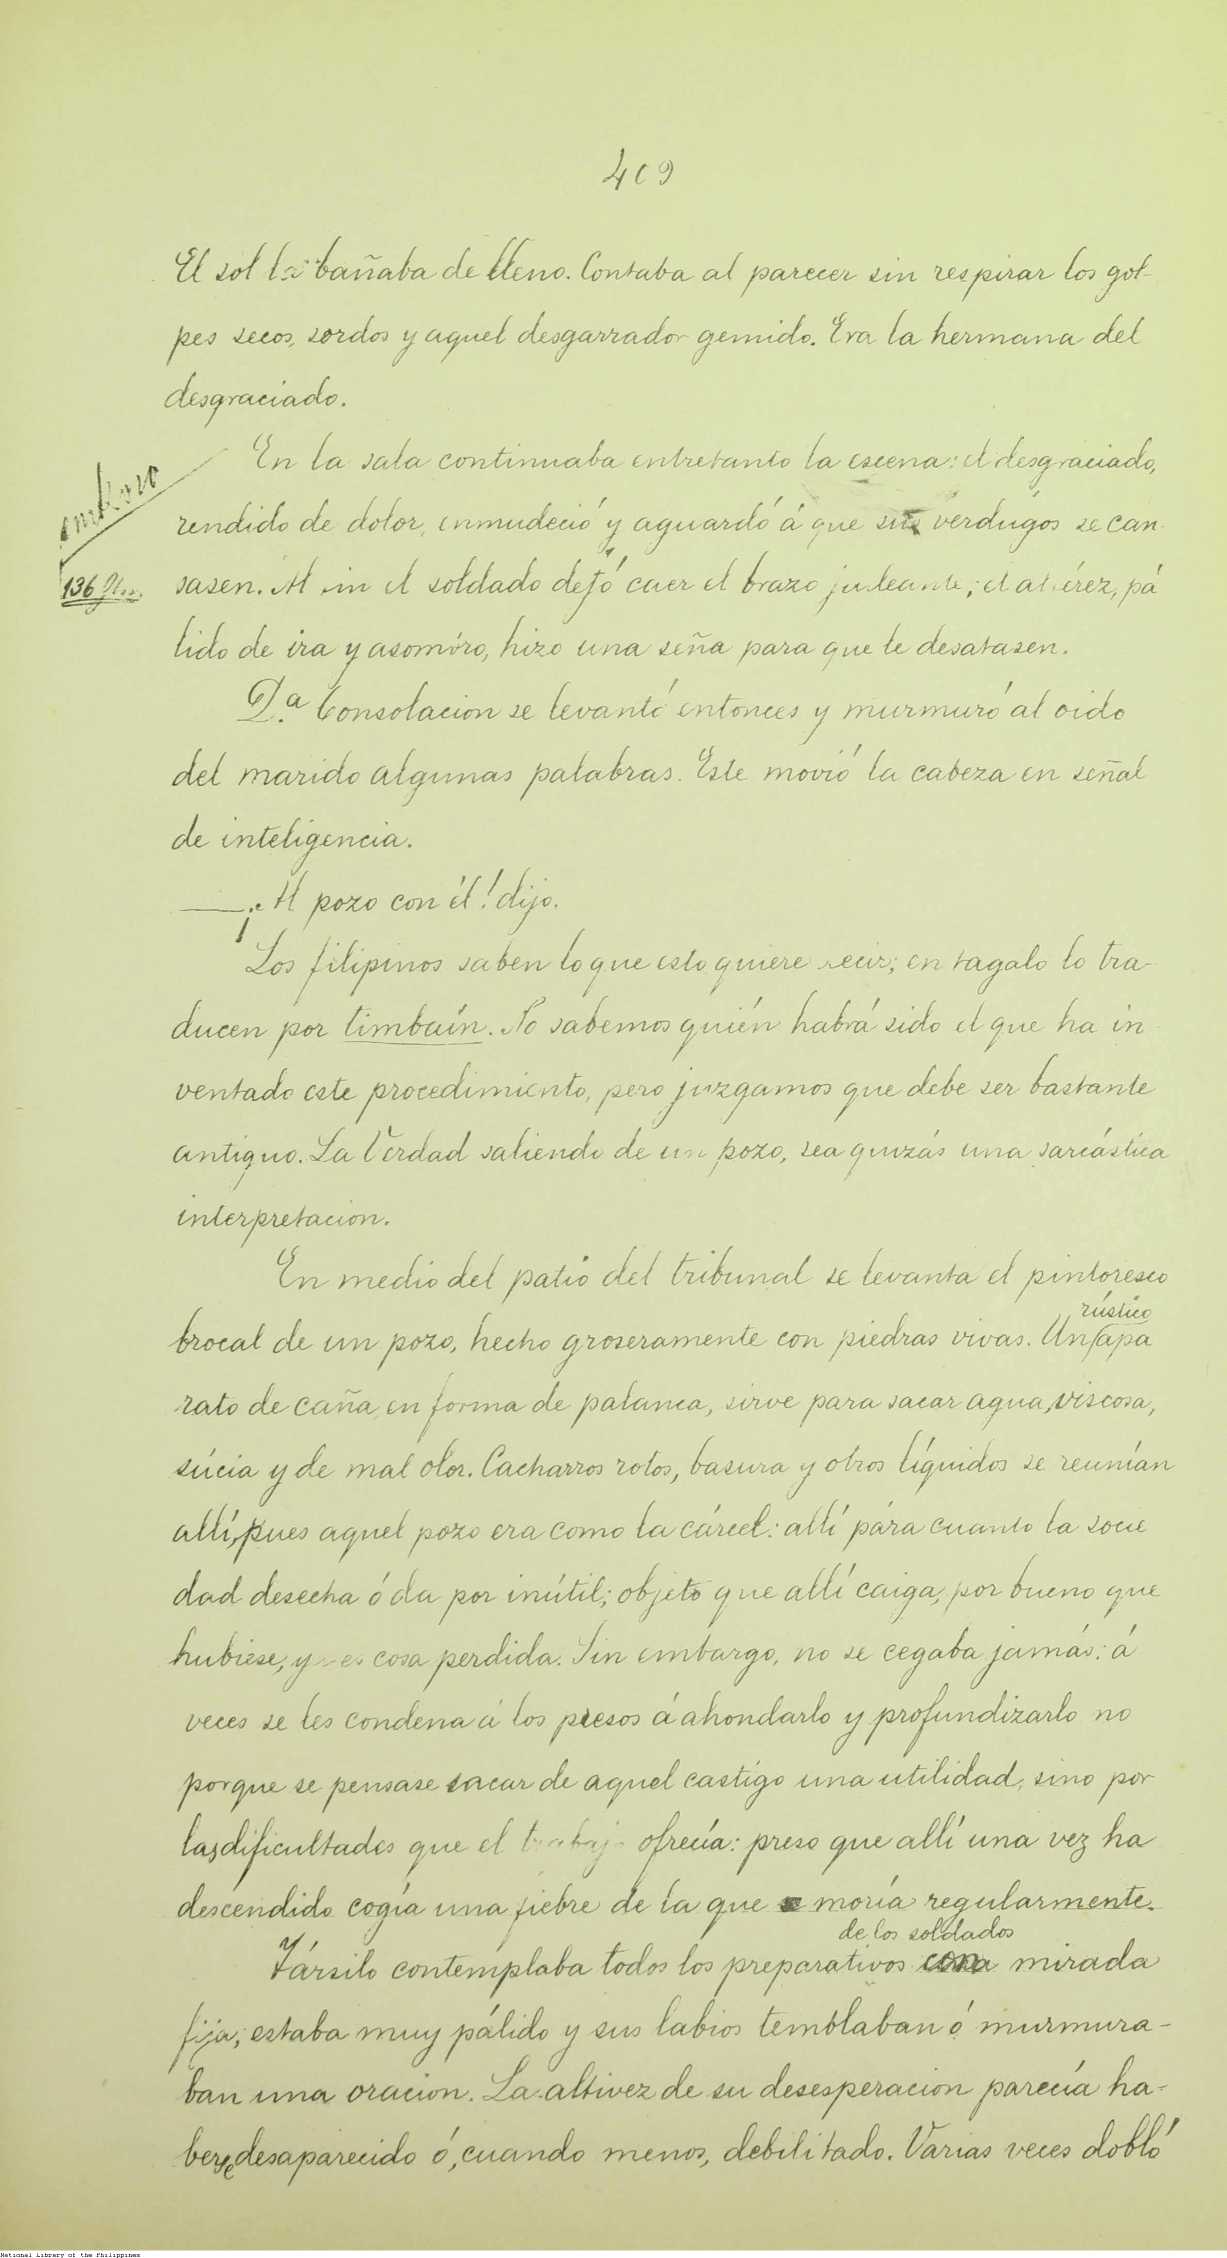 409
El sol la bañaba de lleno. Contaba al parecer sin respirar los gol-
pes secos, sordos y aquel desgarrador gemido. Era la hermana del
desgraciado.
En la sala continuaba entretanto la escena: el desgraciado,
rendido de dolor, enmudeció y aguardó á que sus verdugos se can-
136
sasen. Al fin el soldado dejó caer el brazo jadeante; el alférez, pá
lido de ira y asombro, hizo una seña para que le desatasen.
D.ª Consolacion se levantó entonces y murmuró al oido
del marido algunas palabras. Este movió la cabeza en señal
de inteligencia.
—¡Al pozo con él! dijo.
Los filipinos saben lo que esto quiere decir; en tagalo lo tra-
ducen por timbaín. No sabemos quién habrá sido el que ha in
ventado este procedimiento, pero juzgamos que debe ser bastante
antiguo. La Verdad saliendo de un pozo, sea quizás una sarcástica
interpretacion.
En medio del patio del tribunal se levanta el pintoresco
rústico
brocal de un pozo, hecho groseramente con piedras vivas. Un apa
rato de caña, en forma de palanca, sirve para sacar agua, viscosa,
súcia y de mal olor. Cacharros rotos, basura y otros líquidos se reunían
allí, pues aquel pozo era como la cárcel: allí pára cuanto la socie
dad desecha ó da por inútil; objeto que allí caiga, por bueno que
hubiese, ya es cosa perdida. Sin embargo, no se cegaba jamás: á
veces se les condena á los presos á ahondarlo y profundizarlo no
porque se pensase sacar de aquel castigo una utilidad, sino por
las dificultades que el trabajo ofrecía: preso que allí una vez ha
descendido cogía una fiebre de la que moría regularmente.
de los soldados
Társilo contemplaba todos los preparativos con mirada
fija; estaba muy pálido y sus labios temblaban ó murmura-
ban una oracion. La altivez de su desesperacion parecía ha-
berse desaparecido ó, cuando menos, debilitado. Varias veces dobló